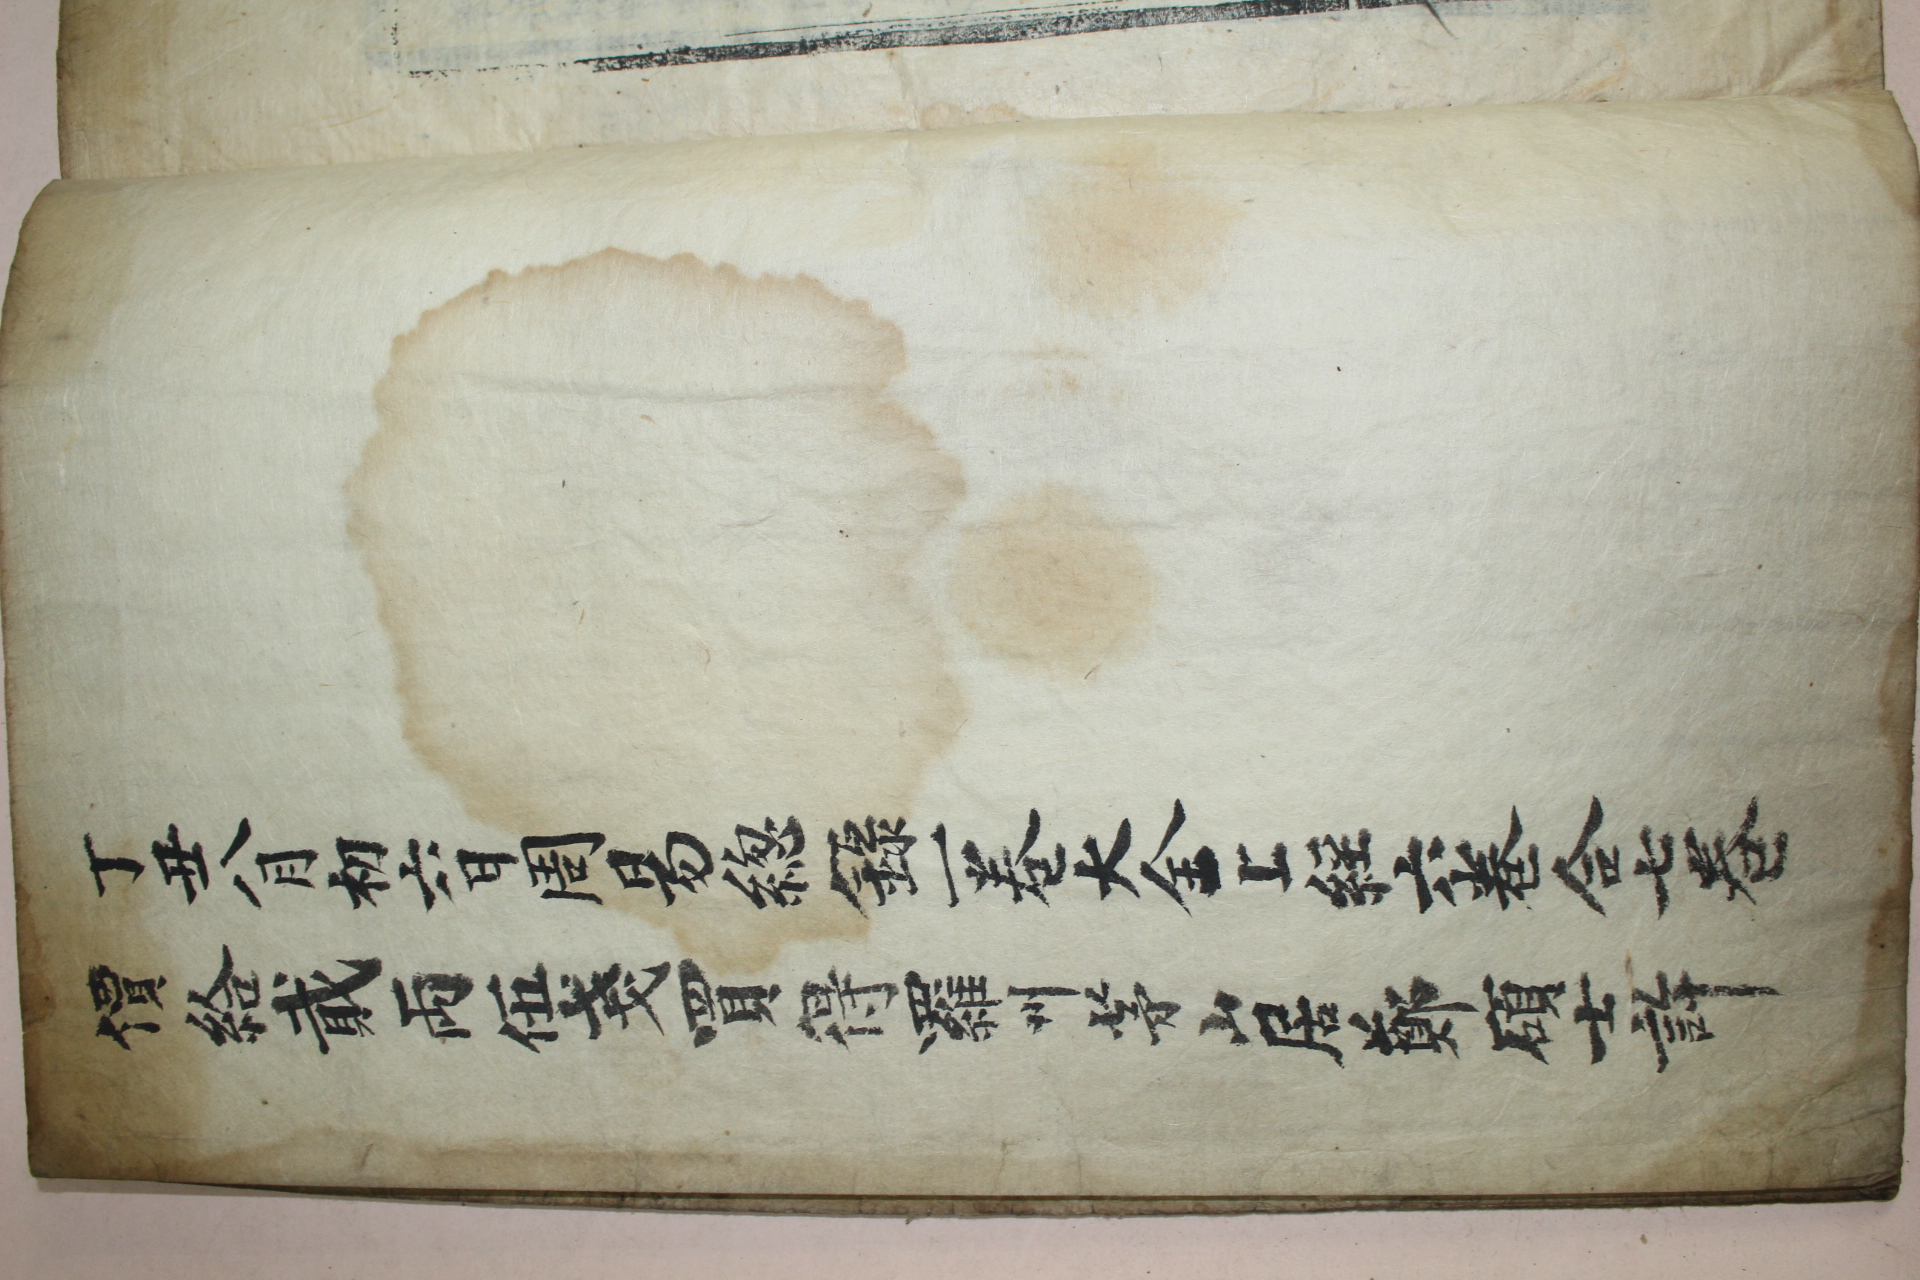 丁丑八月初六日周易總錄一卷大全上經六卷合七卷
價給貳兩伍戔買得羅州山居鄭碩士許